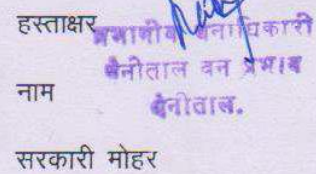 हस्ताक्षर
प्रभागीय वनाधिकारी
नैनीताल वन प्रभाग
नाम
नैनीताल.
सरकारी मोहर